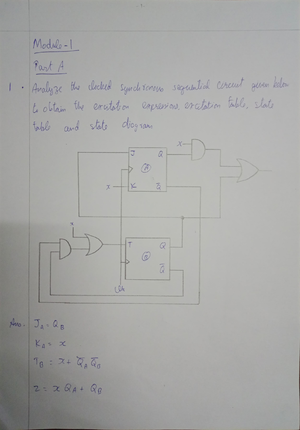 Module - 1
Part A
1. Analyze the clocked synchronous sequential circuit given below
to obtain the excitation expressions, excitation table, state
table and state diagram
x
J Q
A
x K Q̅
x
T Q
B
Q̅
Clk
J_A = Q_B
K_A = x
T_B = x + Q̅_A Q̅_B
z = x Q̅_A + Q_B